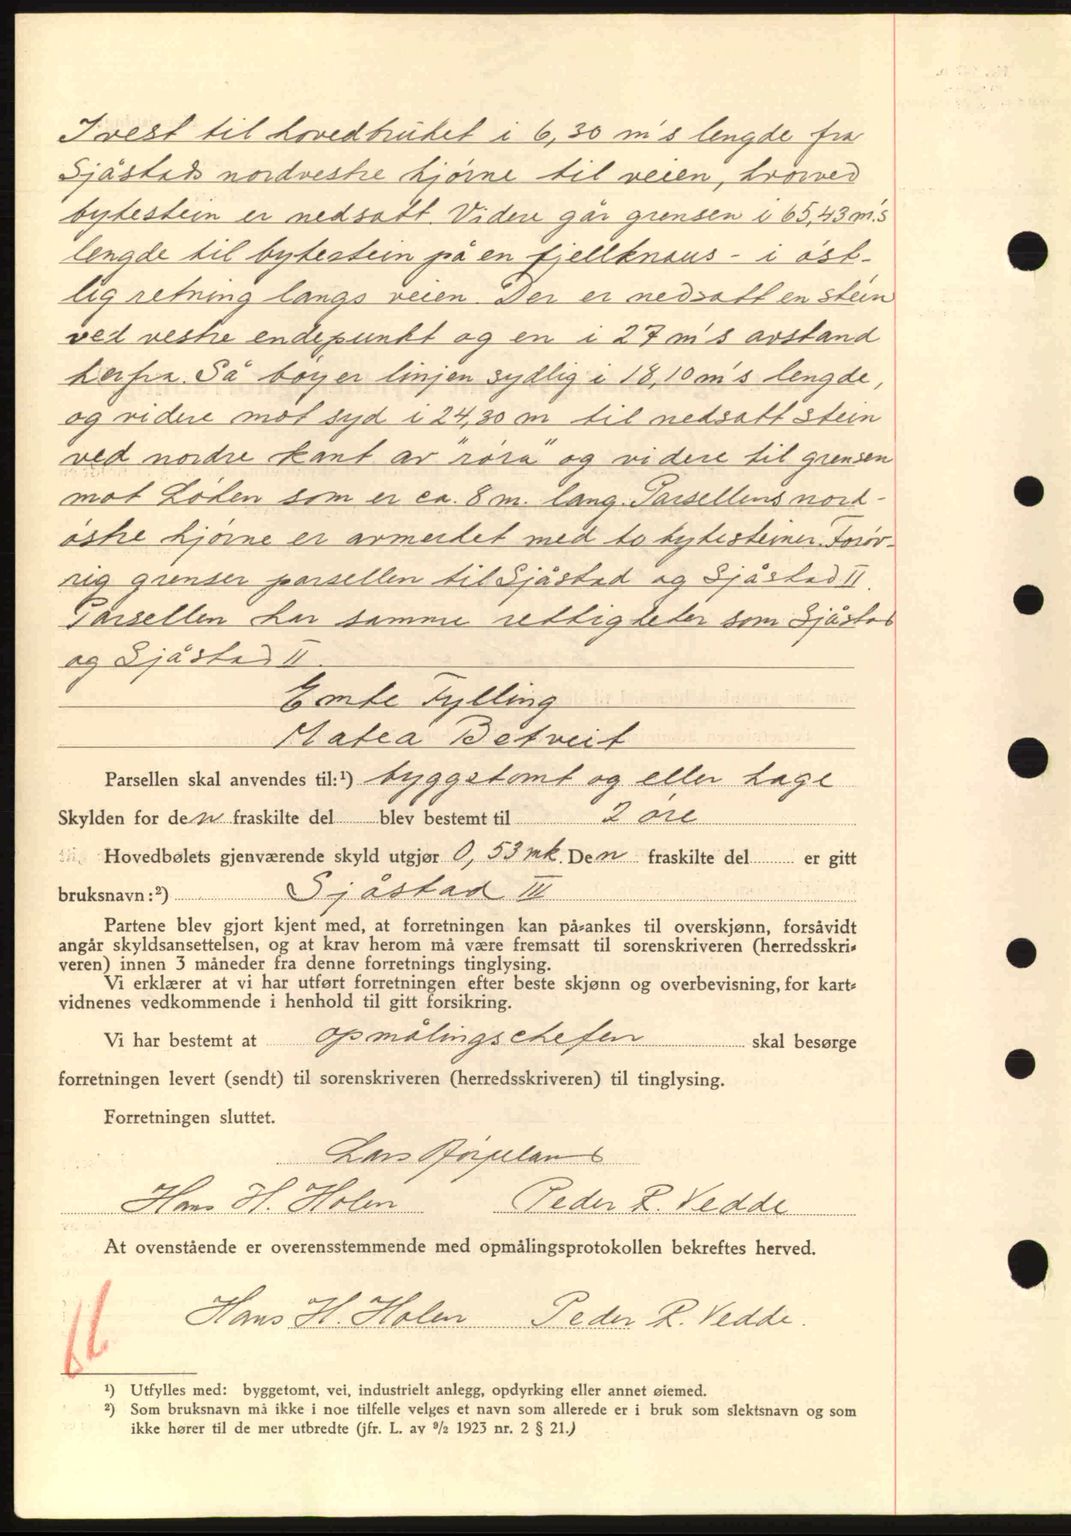 I vest til hovedbruket i 6,30 m's lengde fra
Sjåstads nordvestre hjørne til veien, hvorved
bytestein er nedsatt. Videre går grensen i 65,43 m's
lengde til bytestein på en fjellknaus - i øst-
lig retning langs veien. Der er nedsatt en stein
ved vestre endepunkt og en i 27 m's avstand
herfra. Så bøyer linjen sydlig i 18,10 m's lengde,
og videre mot syd i 24,30 m til nedsatt stein
ved nordre kant av "røra" og videre til grensen
mot Løten som er ca. 8 m. lang. Parsellens nord-
østre hjørne er avmerket med to bytesteiner. Forøv-
rig grenser parsellen til Sjåstad og Sjåstad II.
Parsellen har samme rettigheter som Sjåstad
og Sjåstad II.
Fylling
Matea Betveit
Parsellen skal anvendes til:¹) byggetomt og eller hage
Skylden for den fraskilte del blev bestemt til 2 øre
Hovedbølets gjenværende skyld utgjør 0,53 mk. Den fraskilte del er gitt
bruksnavn:²) Sjåstad III
Partene blev gjort kjent med, at forretningen kan på-ankes til overskjønn, forsåvidt
angår skyldsansettelsen, og at krav herom må være fremsatt til sorenskriveren (herredsskri-
veren) innen 3 måneder fra denne forretnings tinglysing.
Vi erklærer at vi har utført forretningen efter beste skjønn og overbevisning, for kart-
vidnenes vedkommende i henhold til gitt forsikring.
Vi har bestemt at opmålingschefen skal besørge
forretningen levert (sendt) til sorenskriveren (herredsskriveren) til tinglysing.
Forretningen sluttet.
Lars Jørpeland
Hans H. Holen Peder R. Vedde
At ovenstående er overensstemmende med opmålingsprotokollen bekreftes herved.
Hans H. Holen Peder R. Vedde.
¹) Utfylles med: byggetomt, vei, industrielt anlegg, opdyrking eller annet øiemed.
²) Som bruksnavn må ikke i noe tilfelle velges et navn som allerede er i bruk som slektsnavn og som
ikke hører til de mer utbredte (jfr. L. av 9/2 1923 nr. 2 § 21.)